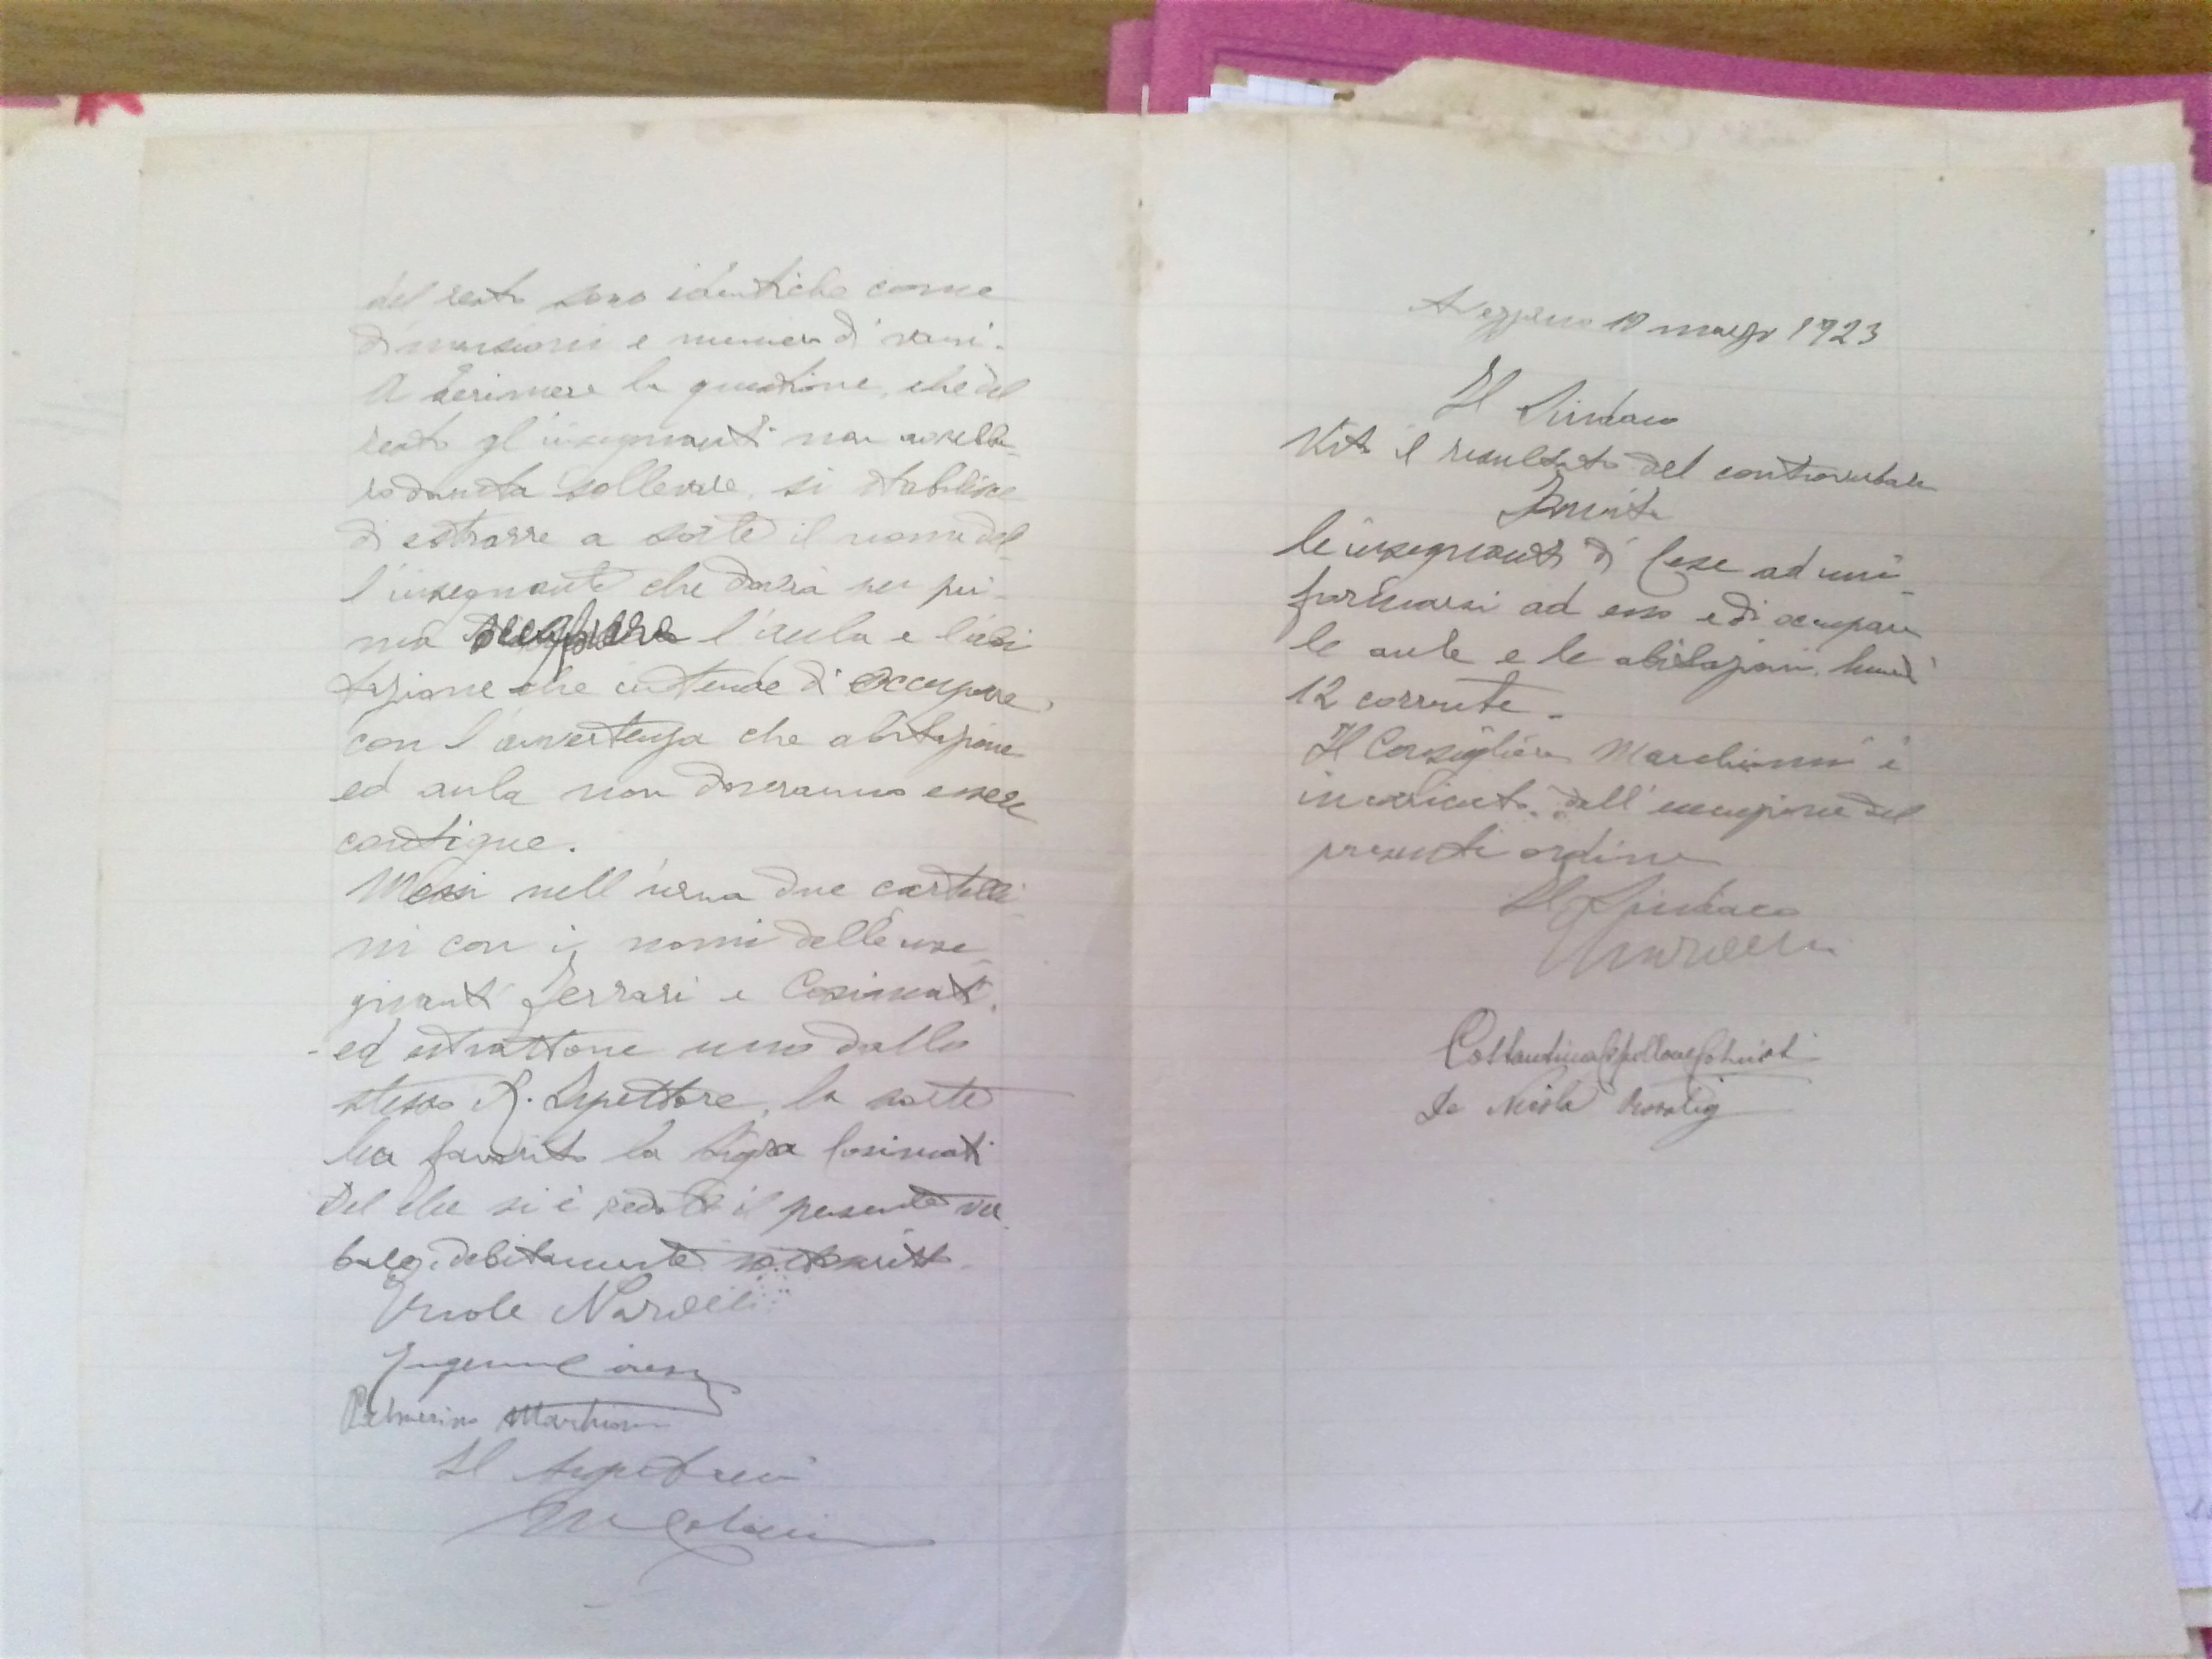 del resto sono identiche come
dimensioni e numero di vani.
A dirimere la questione, che del
resto gl'insegnanti non avrebbe-
ro dovuto sollevare, si stabilisce
di estrarre a sorte il nome del-
l'insegnante che dovrà per pri-
ma scegliere l'aula e l'abi
tazione che intende di occupare,
con l'avvertenza che abitazione
ed aula non dovranno essere
contigue.
Messi nell'urna due cartelli
ni con i nomi delle inse-
gnanti Ferrari e Cosimati,
ed estrattone uno dallo
stesso R. Ispettore, la sorte
ha favorito la Sigra Cosimati
Del che si è redatto il presente ver
bale debitamente sottoscritto.
Ercole Nardelli
Palmerino Marchionni
Il
Avezzano 10 marzo 1923
Il Sindaco
Visto il resultato del controverbale
Invita
le insegnanti di Cese ad uni-
formarsi ad esso e di occupare
le aule e le abitazioni, lunedì
12 corrente.
Il Consigliere Marchionni è
incaricato dell'esecuzione del
presente ordine
Il Sindaco
Nardelli
Costantina Cosimati
De Nicola